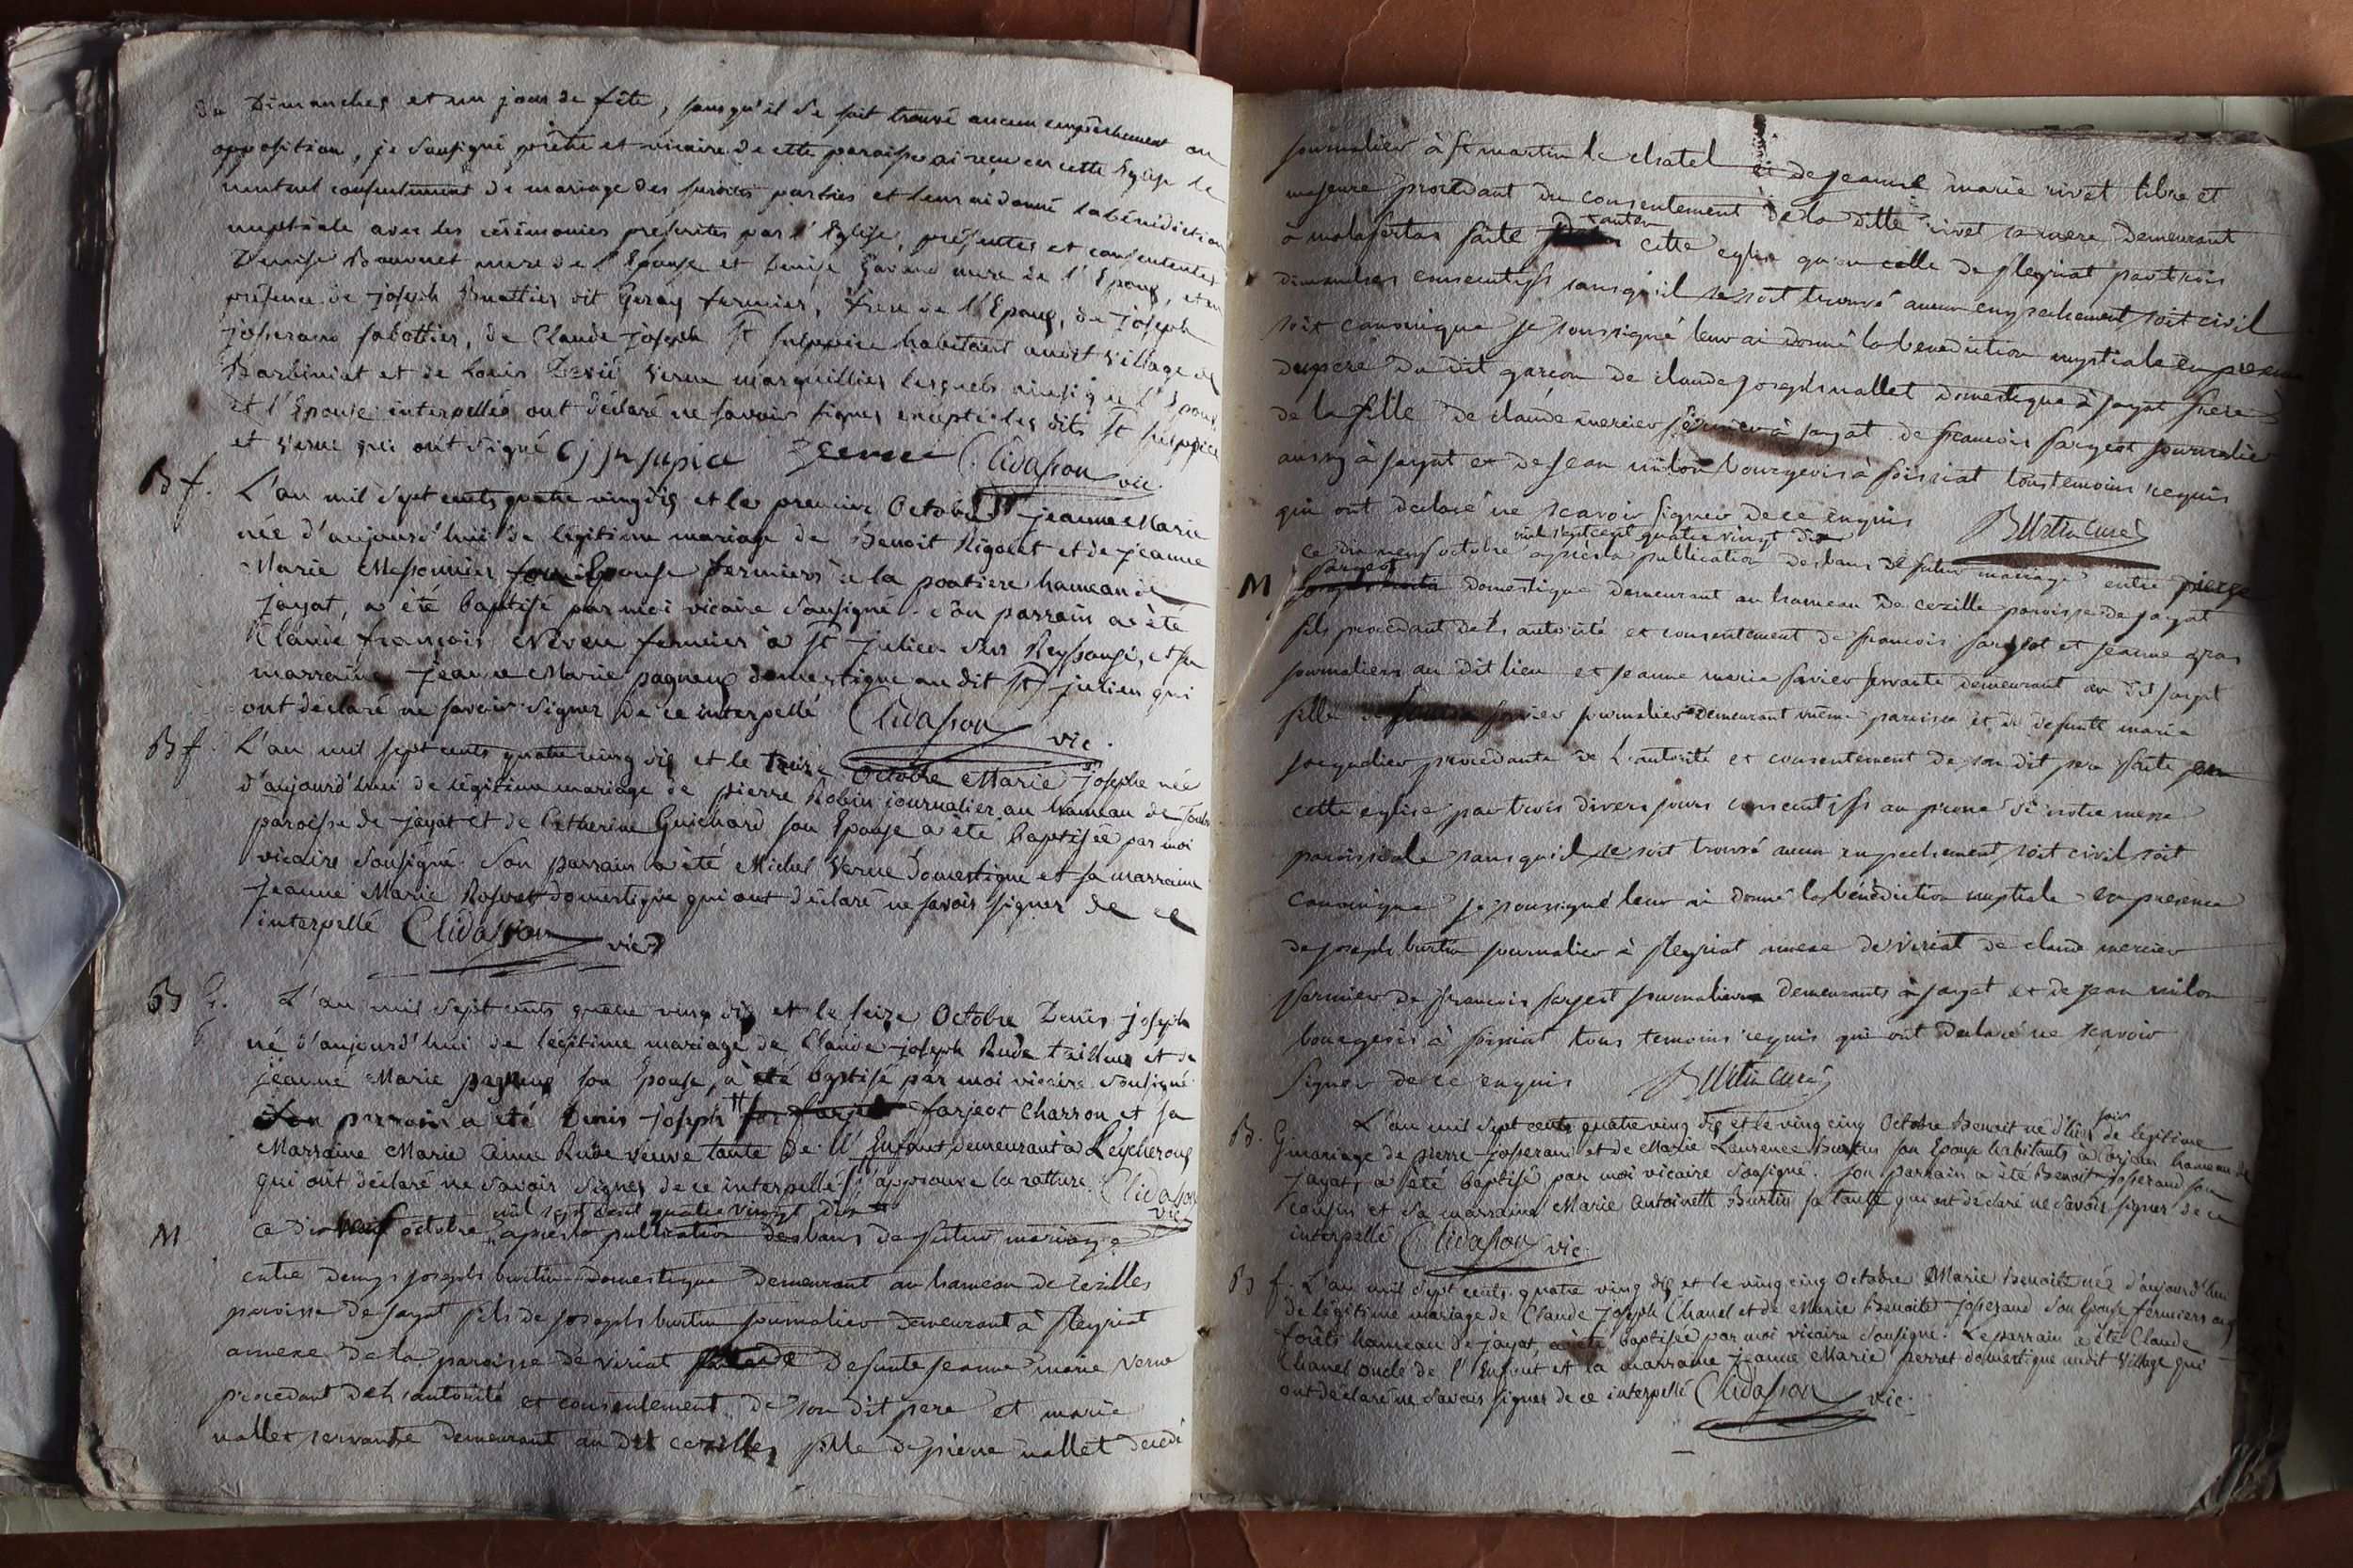 Dimanches et un jour de fête, sans qu'il se soit trouvé aucun empêchement ou
opposition, je soussigné prêtre et vicaire de cette paroisse ai reçu en cette Eglise le
mutuel consentement de mariage des susdites parties et leur ai donné la bénédiction
nuptiale avec les cérémonies prescrites par l'Eglise, présentes et consententes
Denise Bouvret mere de l'Epouse et Denise Gavand mere de l'Epoux, et en
présence de joseph Buattier dit Geray fermier, frere de l'Epoux, de joseph
joserand sabottier, de Claude joseph St sulpice habitant audit village de
et de Louis Verne marguillier lesquels ainsi que l'Epoux
et l'Epouse interpellés ont déclaré ne savoir signer excepté les dits St sulpice
et Verne qui ont signé Cj st supice verne Clidasson vic.
B f. L'an mil sept cents quatre ving dix et le premier Octobre jeanne Marie
née d'aujourd'hui de légitime mariage de Benoit Rigolet et de jeanne
Marie Messonnier son Epouse fermiers à la poatiere hameau de
jayat, a été baptisé par moi vicaire soussigné. son parrain a été
Claude françois Neveu fermier à St julien sur Reyssouze, et sa
marraine jeanne Marie pagneux domestique au dit St julien qui
ont déclaré ne savoir signer de ce interpellé Clidasson vic.
B f. L'an mil sept cents quatre ving dix et le treize Octobre Marie josephe née
d'aujourd'hui de légitime mariage de pierre Robin journalier au hameau de
paroisse de jayat et de Catherine Guichard son Epouse a été baptisée par moi
vicaire soussigné son parrain a été Michel Verne domestique et sa marraine
jeanne Marie domestique qui ont déclaré ne savoir signer de ce
interpellé Clidasson vic
B G. L'an mil sept cents quatre ving dix et le seize Octobre Denis joseph
né d'aujourd'hui de légitime mariage de Claude joseph Rude tailleur et de
jeanne Marie pagneux son Epouse, a été baptisé par moi vicaire soussigné
son parrain a été Denis joseph farjeot charron et sa
Marraine Marie Anne Rude veuve tante de l'Enfant demeurant à Leycheroux
qui ont déclaré ne savoir signer de ce interpellé j'approuve la rature. Clidasson vic
mil sept cent quatre vingt dix
M ce dix neuf octobre après la publication des bans de futur mariage
entre denys joseph burtin domestique demeurant au hameau de cezilles
paroisse de jayat fils de joseph burtin journalier demeurant à fleyriat
annexe de la paroisse de viriat defunte jeanne marie verne
procedant de l'autorité et consentement de son dit pere et marie
nallet servante demeurant au dit cezilles fille de pierre nallet decedé
journalier à st martin le chatel et de jeanne marie rivet libre et
majeure procedant du consentement de la ditte rivet sa mere demeurant
à malafertas faite tant en cette eglise qu'en celle de fleyriat par trois
dimanches consecutifs sans qu'il se soit trouvé aucun empechement soit civil
soit canonique je soussigné leur ai donné la benediction nuptiale en presence
du pere du dit garcon de claude joseph nallet domestique à jayat frere
de la fille de claude mercier fermier à jayat de francois farjeot journalier
aussy à jayat et de jean milon bourgeois à foissiat tous temoins requis
qui ont declaré ne scavoir signer de ce enquis Burtin curé
mil sept cent quatre vingt dix
ce dix neuf octobre après la publication des bans de futur mariage entre pierre
M farjeot domestique demeurant au hameau de cezille paroisse de jayat
fils procedant de l'autorité et consentement de francois farjeot et jeanne gras
journaliers au dit lieu et jeanne marie servante demeurant au dit jayat
fille journalier demeurant même paroisse et de defunte marie
procedante de l'autorité et consentement de son dit pere faite
cette eglise par trois divers jours consecutifs au prone de notre messe
paroissiale sans qu'il se soit trouvé aucun empechement soit civil soit
canonique je soussigné leur ai donné la bénédiction nuptiale en presence
de joseph burtin journalier à fleyriat annexe de viriat de claude mercier
fermier de francois farjeot journalier demeurants à jayat et de jean milon
bourgeois à foissiat tous temoins requis qui ont declaré ne scavoir
signer de ce enquis Burtin curé
B. G L'an mil sept cents quatre ving dix et le ving cinq Octobre Benoit né d'hier soir de légitime
mariage de pierre joserand et de Marie Laurence Burtin son Epouse habitants à hameau de
jayat, a été baptisé par moi vicaire soussigné. son parrain a été Benoit joserand son
cousin et sa marraine Marie Antoinette Burtin sa tante qui ont déclaré ne savoir signer de ce
interpellé Clidasson vic.
B f. L'an mil sept cents quatre ving dix et le ving cinq Octobre Marie Benoite née d'aujourd'hui
de légitime mariage de Claude joseph Chanel et de Marie Benoite joserand son Epouse fermiers aux
forêts hameau de jayat, a été baptisée par moi vicaire soussigné. Le parrain a été Claude
Chanel oncle de l'Enfant et la marraine jeanne Marie perret domestique audit village qui
ont déclaré ne savoir signer de ce interpellé Clidasson vic.